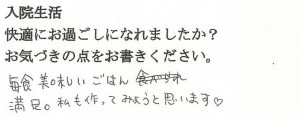 入院生活
快適にお過ごしになれましたか？
お気づきの点をお書きください。
毎食美味しいごはん
満足。私も作ってみようと思います♡